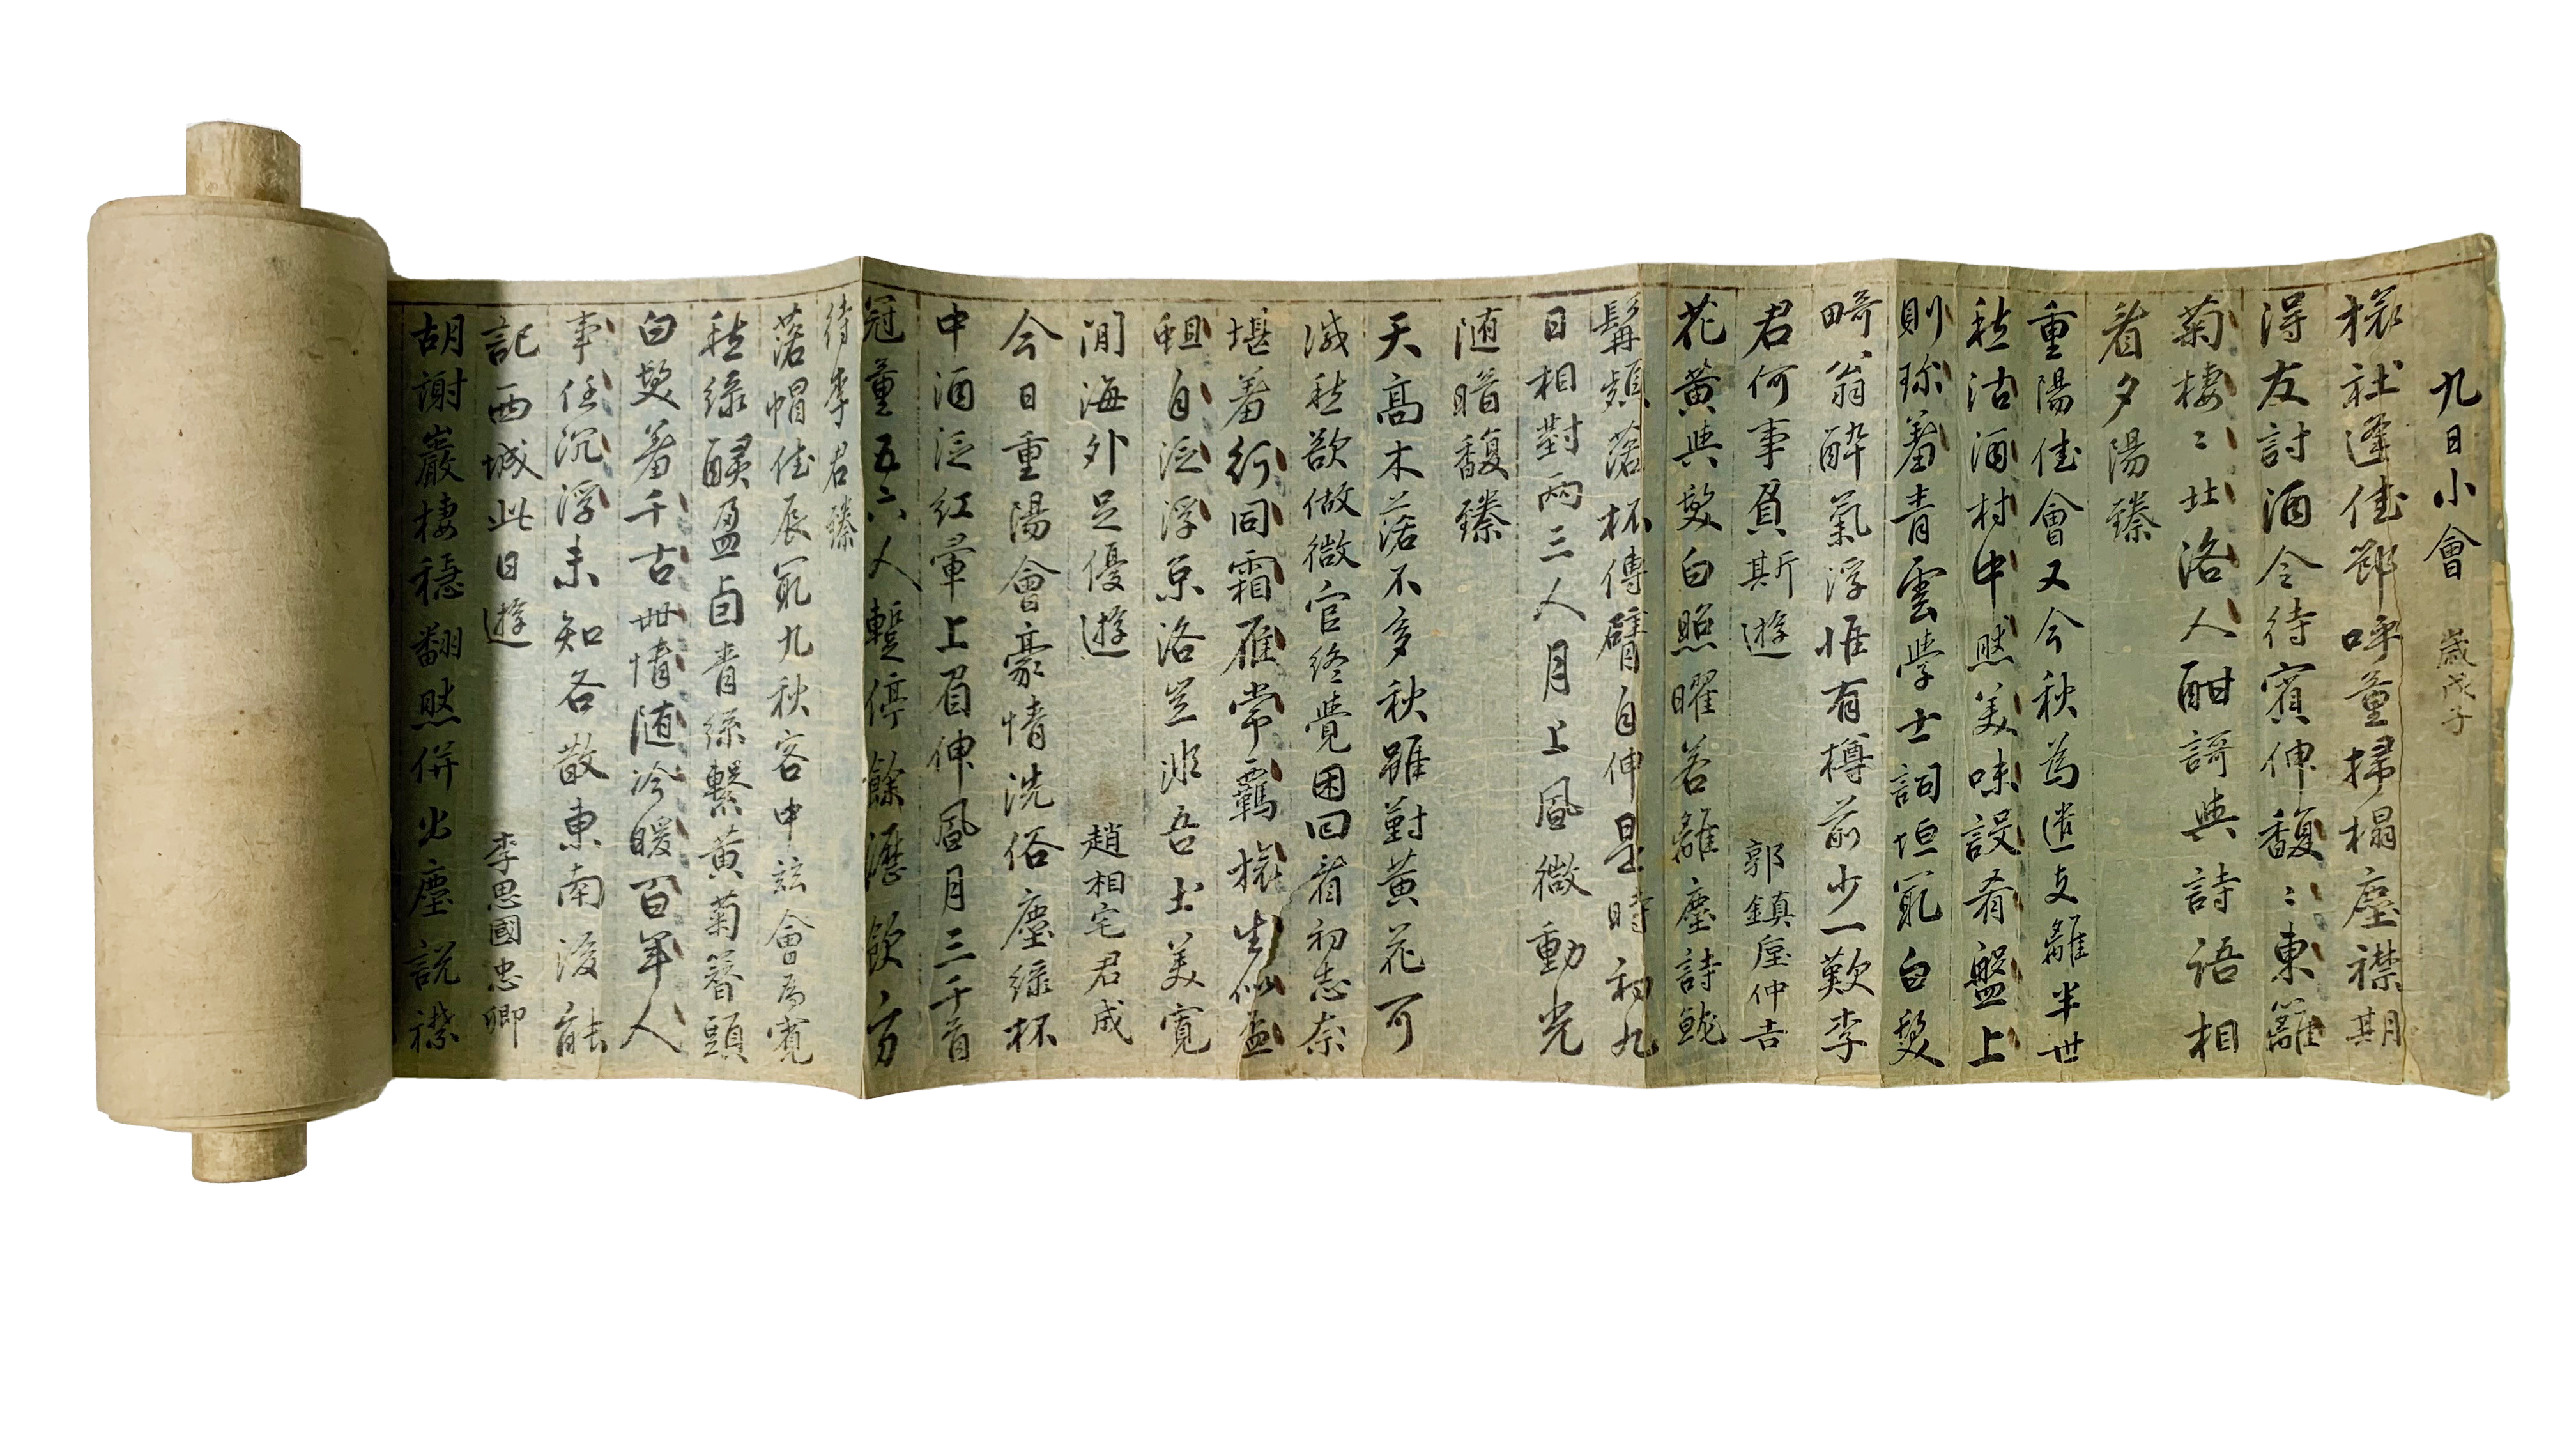 九日小會 歲戊子
槟社逢佳節呼童掃榻塵襟期
得友討酒令待賓伸馥〻東籬
菊棲〻北洛人酣謌與詩語相
看夕陽臻
重陽佳會又今秋為遣支離半世
愁沽酒村中默美味設肴盤上
則珍羞青雲學士詞垣冣白髮
畸翁醉氣浮惟有樽前少一歎李
君何事負斯遊 郭鎮垕仲吉
花黃與髮白照曜若離塵詩
髯頻落杯傳臂自伸是時初九
日相對兩三人月上風微動光
随暗馥臻
天高木落不多秋雖對黃花可
滅愁欲做微官終覺困回看初志奈
堪羞行同霜雁常羈槟生似盃
蛆自泛浮京洛豈非吾土美寬
閒海外足優遊 趙相宅君成
今日重陽會豪情洗俗塵綠杯
中酒泛紅暈上眉伸風月三千首
冠童五六人蹔停餘瀝飲方
待李君臻
落帽佳辰冣九秋客中玆會為寬
愁綠醱盈卣青絲繫黃菊簪頭
白髮羞千古世情随冷暖百年人
事任沉浮未知各散東南後能
記西城此日遊 李思國忠卿
胡謝巖棲穩翻然併出塵說襟